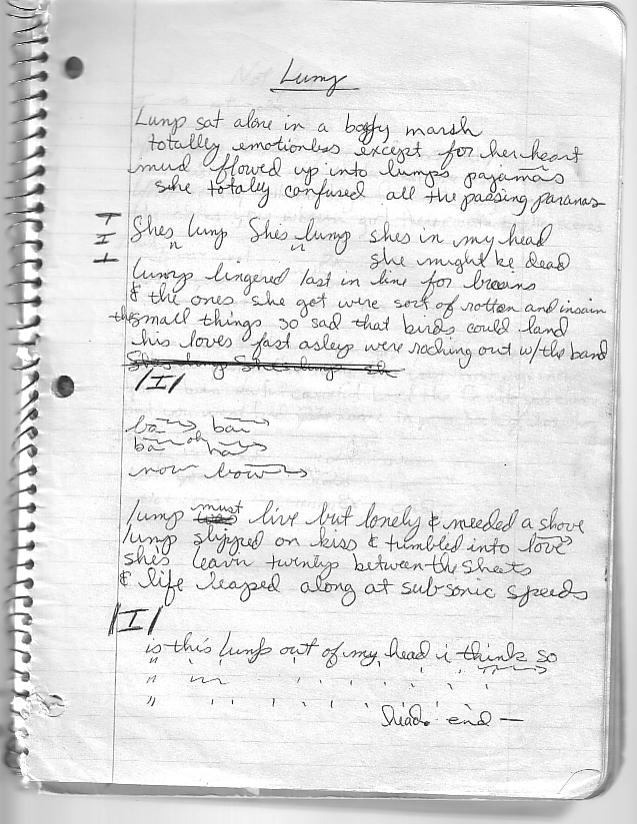 Lump
Lump sat alone in a boggy marsh
totally emotionless except for her heart
mud flowed up into lumps pajamas
she totally confused all the passing paranas
I Shes lump Shes lump shes in my head
she might be dead
lump lingered last in line for brains
& the ones she got were sort of rotten and insain
the small things so sad that birds could land
his loves fast asleep were roching out w/the band
Shes lump Shes lump she
/I/
ba bau
ba oh
now bow
lump must live but lonely & needed a shove
lump slipped on kiss & tumbled into love
she's twenty between the sheets
& life leaped along at subsonic speeds
|I/
is this lump out of my head i think so
" ' ' ' ' ' '
" ' ' ' '
" ' ' ' ' ' '
head. end —